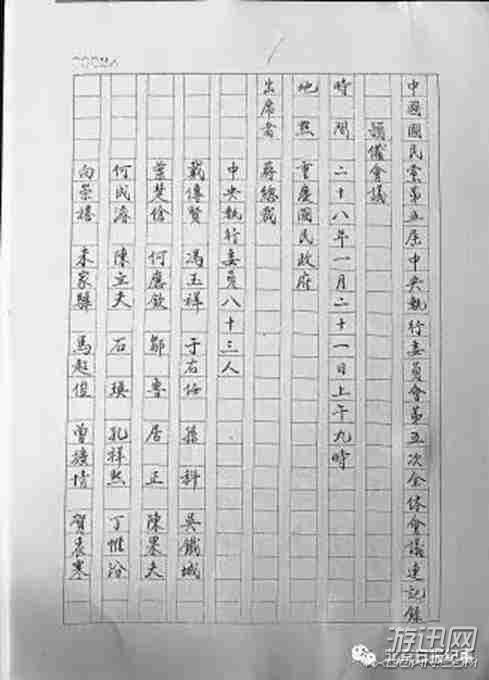 中國國民黨第五屆中央執行委員會第五次全体會議速記錄
預備會議
時間 二十八年一月二十一日上午九時
地點 重慶國民政府
出席者 蔣總裁
中央執行委員八十三人
戴傳賢 馮玉祥 于右任 孫科 吳鐵城
葉楚傖 何應欽 鄒魯 居正 陳果夫
何成濬 陳立夫 石瑛 孔祥熙 丁惟汾
朱家驊 馬超俊 曾擴情 賀衷寒
游讯网